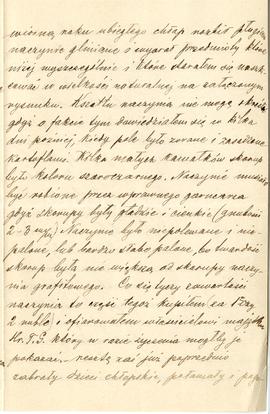 wiosną roku ubiegłego chłop rozbił pługiem
naczynie gliniane i wyorał przedmioty które
niżej wyszczególnię i które starałem się narys-
ować w wielkości naturalnej na załączonym
rysunku. Kształtu naczynia nie mogę określić
gdyż o fakcie tym dowiedziałem się w kilka
dni później kiedy pole było zorane i zasadzone
kartoflami. Kilka małych kawałków skorup
było koloru szaroczarnego. Naczynie musiało
być robione przez wprawnego garncarza
gdyż skorupy były gładkie i cienkie (grubości
2-3 m/m). Naczynie było niepolewane i nie-
palone, lub bardzo słabo palone, bo twardość
skorup była nie większa od skorupy naczy-
nia grafitowego. Co się tyczy zawartości
naczynia to część tegoż kupiłem za
2 ruble i ofiarowałem właścicielowi majątku
Hr. T. G. który w razie życzenia mógłby je
pokazać. - resztę zaś już poprzednio
zabrały dzieci chłopskie, połamały i